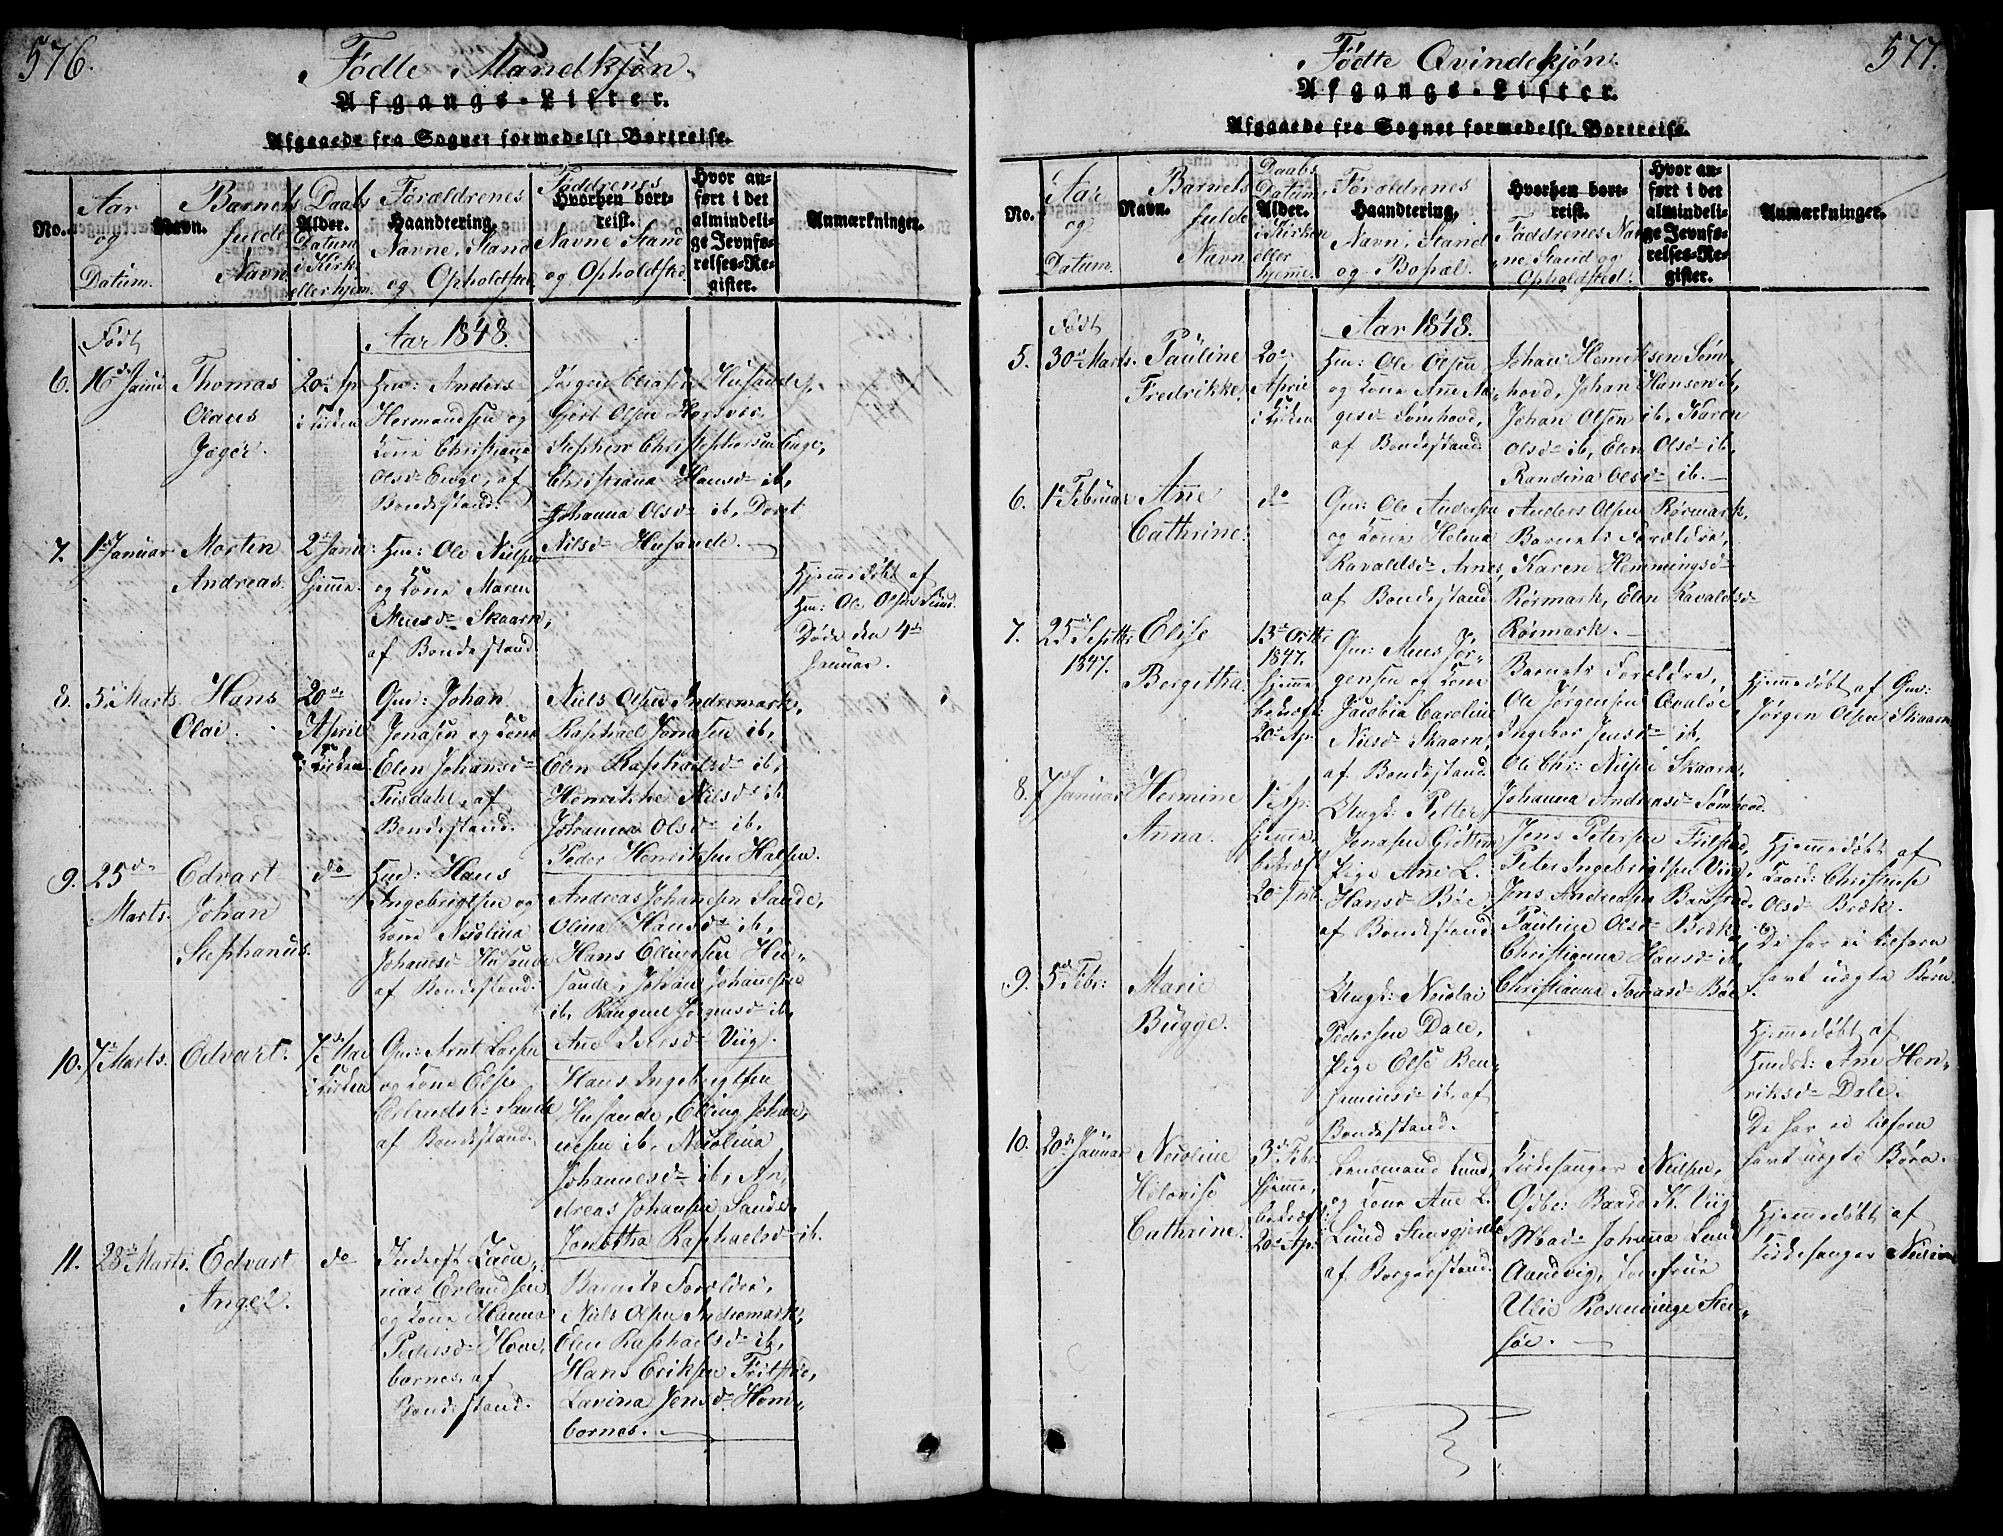 576.
Fødte Mandkjøn.
Afgangs-Lister.
Afgaaede fra Sognet formedelst Bortreise.
No.
Aar og Datum.
Navn.
Barnets fulde Navn
Daabs
Alder.
Datum i Kirk. eller hjem.
Forældrenes
Haandtering.
Navne, Stand og Opholdsted
Faddrenes
Hvorhen bortreist.
Navne Stand og Opholdsted
Hvor anført i det almindelige Jevnførelses-Register.
Anmarkninger.
Aar 1848.
Født
6. 16de Janu Thomas Olaus Jæger.
20de Ap. i Kirken
Hm: Anders
Hermandsen og
Kone Christianna
Olsd- Enge, af
Bondestand.
Jørgen Eliasen Husaude,
Gjert Olsen Horsvir,
Stephen Christophersen Enge,
Christiana Hansd- ib,
Johanna Olsd- ib, Doret
Nilsd- Husande.
7. 1de Januar Morten Andreas.
2de Janu: hjemme.
Hm: Ole Nielsen
og Kone Maren
Meusd- Skaarn,
af Bondestand.
Hjemmedøbt af
Hm: Ole Olsen Sund.
Døde den 4de
Januar.
8. 5de Marts. Hans Olai.
20de April i Kirken
Gm: Johan
Jonasen og Kone
Elen Johansd-
Teisdahl, af
Bondestand.
Niels Olsen Andremark,
Raphael Jonasen ib,
Elen Raphaelsd- ib,
Henrikke Nilsd- ib
Johanna Olsd- ib.
Peder Henriksen Halsen.
9. 25de Marts. Edvart Johan Stephanus.
do
Hm: Hans
Ingebrigtsen og
Kone Nicolina
Johannesd- Husaude
af Bondestand.
Andreas Johansen Sande,
Olina Hansd- ib,
Hans Ellingsen Husande, Johan Johannesen
ib, Ranguel Jørgensd- ib,
Ane Iversd- Viig.
10. 7de Marts. Edvart.
7de Mai i Kirken
Gm: Arnt Larsen
og Kone Else
Erlandsd- Sande
af Bondestand.
Hans Ingebrigtsen
Husande, Elling Johannesen ib, Nicolina
Johannesd- ib, Andreas Johansen Sande,
Jonetha Raphaelsd- ib.
11. 28de Marts. Edvart Angel.
do
Inderst Zacarias Erlandsen
og Kone Hanna
Pedersd- Hombornes, af
Bondestand.
Barnets Forældre,
Niels Olsen Andremark,
Elen Raphaelsd- ib,
Hans Eriksen Frilstad,
Lavina Jensd- Hombornes.
577.
Fødte Qvindekjøn.
Afgangs-Lister.
Afgaaede fra Sognet formedelst Bortreise.
No.
Aar og Datum.
Navn.
Barnets fulde Navn
Daabs Datum
Alder.
i Kirken eller hjemme.
Forældrenes
Haandtering,
Navn, Stand og Bopæl.
Hvorhen bortreist.
Faddrenes Navne, Stand og Opholdsted.
Hvor anført i det almindelige Jevnførelses-Register.
Anmarkninger.
Aar 1848.
Født
5. 30de Marts. Pauline Fredrikke.
20de April i Kirken
Hm: Ole Olsen
og Kone Ane Aagesd- Sømhovd,
af Bondestand
Johan Henriksen Sømhovd, Johan Hansen ib,
Johan Olsen ib, Karen
Olsd- ib, Elen Olsd- ib,
Randina Olsd- ib.
6. 1de Februar Ane Cathrine.
do
Gm: Ole Andersen
og Kone Helena
Ravaldsd- Arnes,
af Bondestand
Anders Olsen Rørmark,
Barnets Forældre,
Karen Hemmingsd-
Rørmark, Elen Ravaldsd-
Rørmark.
7. 25de Septbr 1847. Elise Bergitha.
13de Octbr 1847. hjemme bekræft: 20de Ap.
Gm: Meus Jørgensen og Kone
Jacobia Caroline
Nilsd- Skaarn,
af Bondestand
Barnets Forældre,
Ole Jørgensen Qvaløe
Ingebor Jensd- ib,
Ole Chr: Nilsen Skaarn,
Johanna Andreasd- Sømhovd.
Hjemmedøbt af Gm:
Jørgen Olsen Skaarn
8. 7 Januar Hermine Anna.
1de Ap. hjemme, bekræft
Ungk: Petter
Jonasen Grøttem
Pige Ane L.
Hansd- Bøe,
af Bondestand
Jens Petersen Frilstad,
Peter Ingebrigtsen Viig,
Jens Andreasen
Pauline Olsd- Bræk,
Christianna Hansd- ib
Christianna Tomasd- Bøe
Hjemmedøbt af
Christense
Olsd- Bræk.
De har ei tilforn
havt uægte Børn.
9. 5de Febr: Marie Bugge.
Ungk: Nicolai
Pedersen Dale,
Pige Else Benjaminsd- ib, af
Bondestand.
Hjemmedøbt af
Ane Henriksd- Dale.
De har ei tilforn
havt uægte Børn.
10. 20de Januar Nicoline Helovise Cathrine.
3de Febr. hjemme, bekræft: 20de Ap:
Lensmand Lund,
og Kone Ane L.
Lund
af Borgerstand.
Kirkesanger Nielsen,
Gdbr: Baard K. Viig
Mad- Johanna Lund
Aandvig, Jomfrue
Ulie Rosenvinge
Hjemmedøbt af
Kirkesanger Nielsen